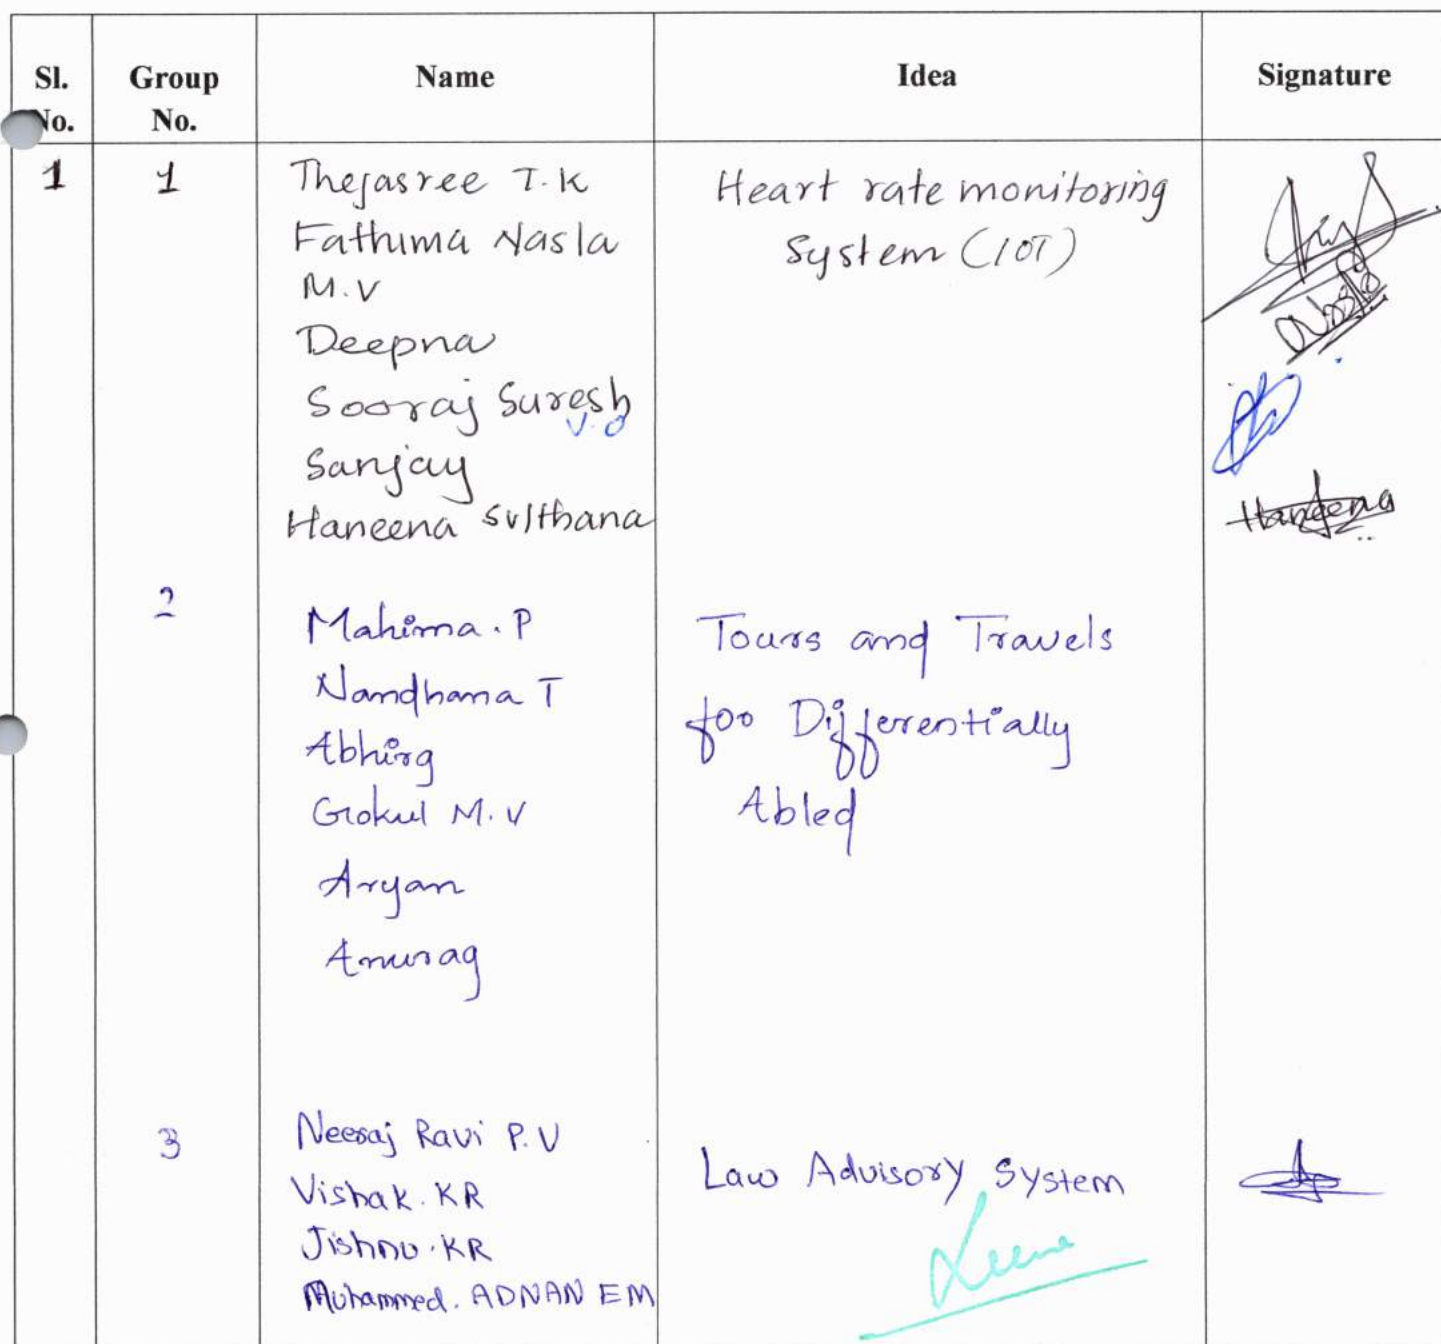 Sl. No.
Group No.
Name
Idea
Signature
1
1
Thejasree T.K
Fathima Nasla
M.V
Deepna
Sooraj Suresh
V.O
Sanjay
Haneena Sulthana
Heart rate monitoring
System (IOT)
Nasla
Haneena
2
Mahima. P
Nandhana T
Abhirg
Gokul M.V
Aryan
Anurag
Tours and Travels
for Differentially
Abled
3
Neeraj Ravi P.V
Vishak. KR
Jishnu. KR
Muhammed. ADNAN EM
Law Advisory System